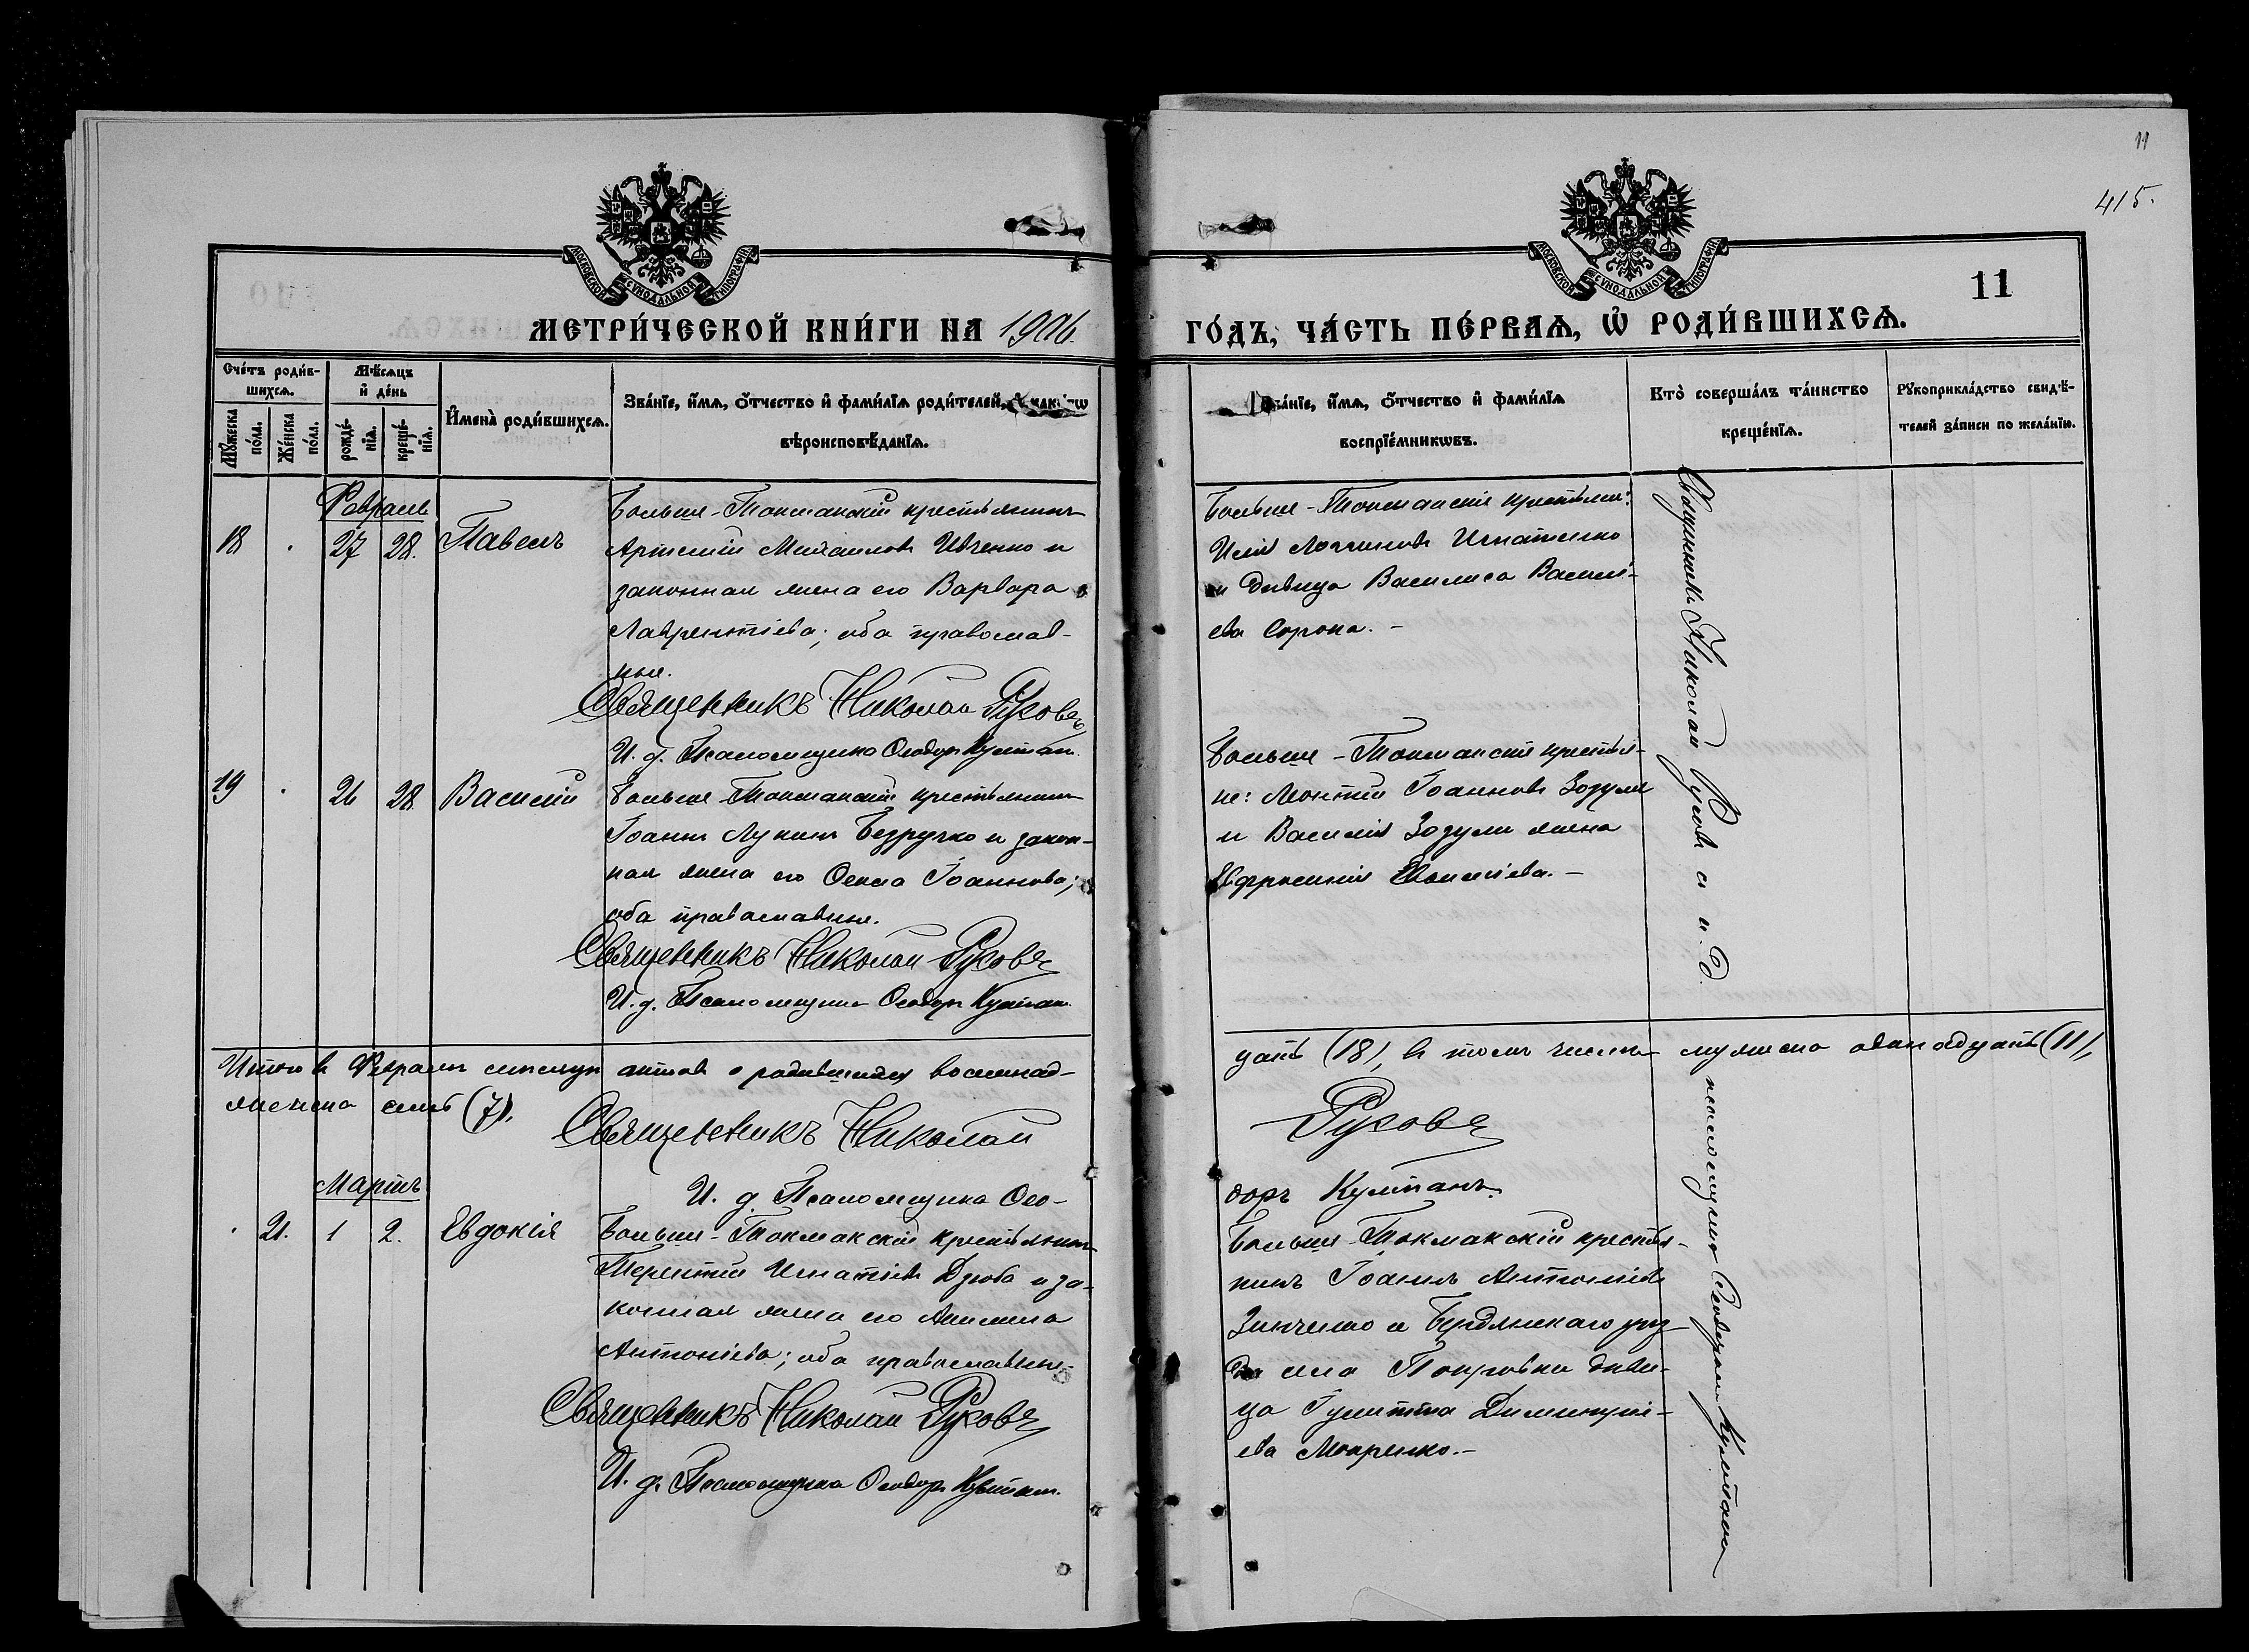 11
415.
МОСКОВСКОЙ СѴНОДАЛЬНОЙ ТИПОГРАФІИ
МОСКОВСКОЙ СѴНОДАЛЬНОЙ ТИПОГРАФІИ
11
МЕТРИ́ЧЕСКОЙ КНИ́ГИ НА 1906
ГО́ДЪ, ЧА́СТЬ ПЕ́РВАѦ, Ѡ҆ РОДИ́ВШИХСѦ.
Сче́тъ роди́в-
шихсѧ.
Мꙋ́жеска по́ла.
Же́нска по́ла.
Мѣ́сѧцъ
и҆ де́нь
рожде́-
нїѧ.
креще́-
нїѧ.
И҆мена̀ роди́вшихсѧ.
Зва́нїе, и҆́мѧ, о҆́тчество и҆ фами́лїѧ роди́телей,
вѣроисповѣ́данїѧ.
Зва́нїе, и҆́мѧ, о҆́тчество и҆ фами́лїѧ
воспрїе́мникѡвъ.
Кто̀ соверша́лъ та́инство
креще́нїѧ.
Рꙋкоприкла́дство свидѣ́-
телей за́писи по жела́нїю.
Февраль
18 . 27 28. Павелъ
Больше-Токмакскій крестьянинъ
Артемій Михаиловъ Ивченко и
законная жена его Варвара
Лаврентіева; оба православ-
ные.
Священникъ Николай Русовъ
И. д. Псаломщика Ѳеодоръ Култанъ.
Больше-Токмакскіе крестьяне:
Игнатенко
и дѣвица Василиса Василі-
ева Сорока. -
19 . 26 28 Василій
Больше-Токмакскій крестьянинъ
Іоаннъ Лукинъ Безручко и закон-
ная жена его Іоаннова;
оба православные.
Священникъ Николай Русовъ
И. д. Псаломщика Ѳеодоръ Култанъ.
Больше-Токмакскіе крестья-
не: Леонтій Іоанновъ Зозуля
и Василія Зозули жена
Евфросинія -
Итого въ Февралѣ мѣсяцѣ актовъ о родившихся восемнад-
цать (18), въ томъ числѣ мужеска одинадцать (11),
женска семь (7).
Священникъ Николай
Русовъ
И. д. Псаломщика Ѳео-
доръ Култанъ.
Мартъ
. 21. 1 2. Евдокія
Больше-Токмакскій крестьянинъ
Терентій Игнатіевъ Дзюба и за-
конная жена его
Антоніева; оба православные.
Священникъ Николай Русовъ
И. д. Псаломщика Ѳеодоръ Култанъ.
Больше-Токмакскій крестья-
нинъ Іоаннъ Антоніевъ
Зинченко и Бердянскаго уѣз-
да села Покровки дѣви-
ца Іулитта Димитрі-
ева Мокренко. -
Священникъ Николай Русовъ и и. д.
псаломщика Ѳеодоръ Култанъ